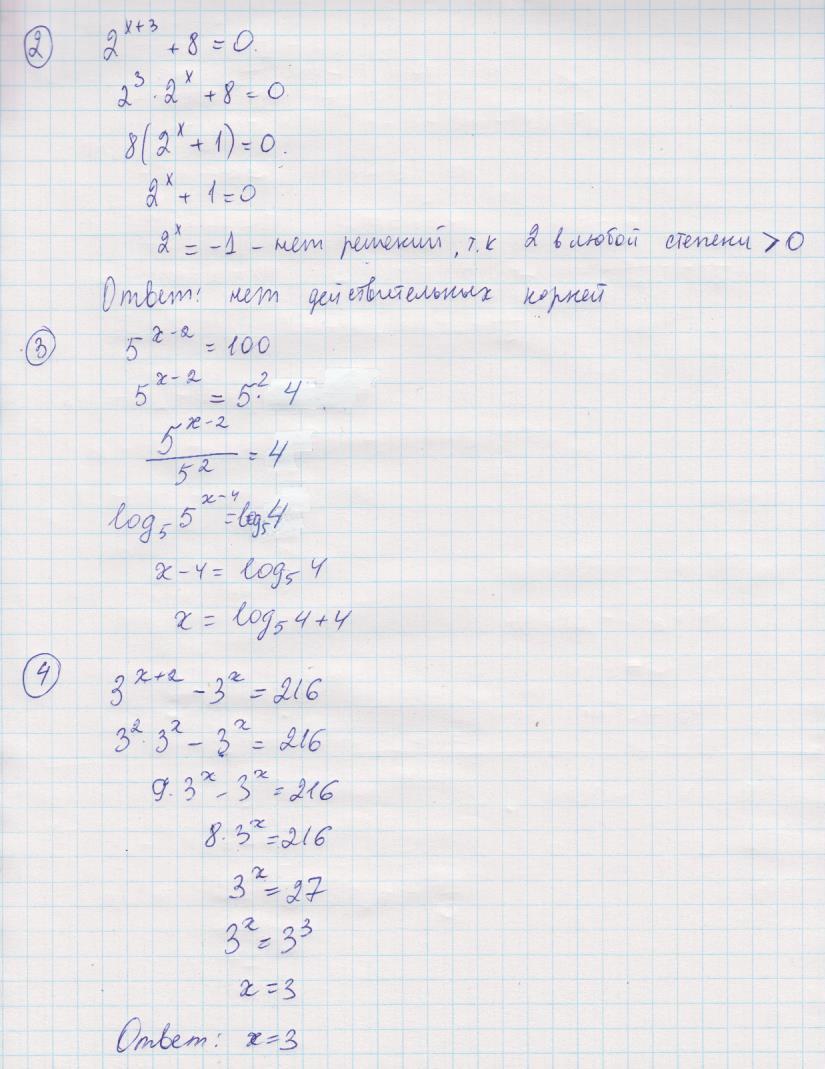 ② 2^{x+3} + 8 = 0.
2^3 · 2^x + 8 = 0
8(2^x + 1) = 0.
2^x + 1 = 0
2^x = -1 - нет решений, т.к 2 в любой степени > 0
Ответ: нет действительных корней
③ 5^{x-2} = 100
5^{x-2} = 5^2 · 4
5^{x-2} / 5^2 = 4
log_5 5^{x-4} = log_5 4
x-4 = log_5 4
x = log_5 4 + 4
④ 3^{x+2} - 3^x = 216
3^2 · 3^x - 3^x = 216
9 · 3^x - 3^x = 216
8 · 3^x = 216
3^x = 27
3^x = 3^3
x = 3
Ответ: x = 3